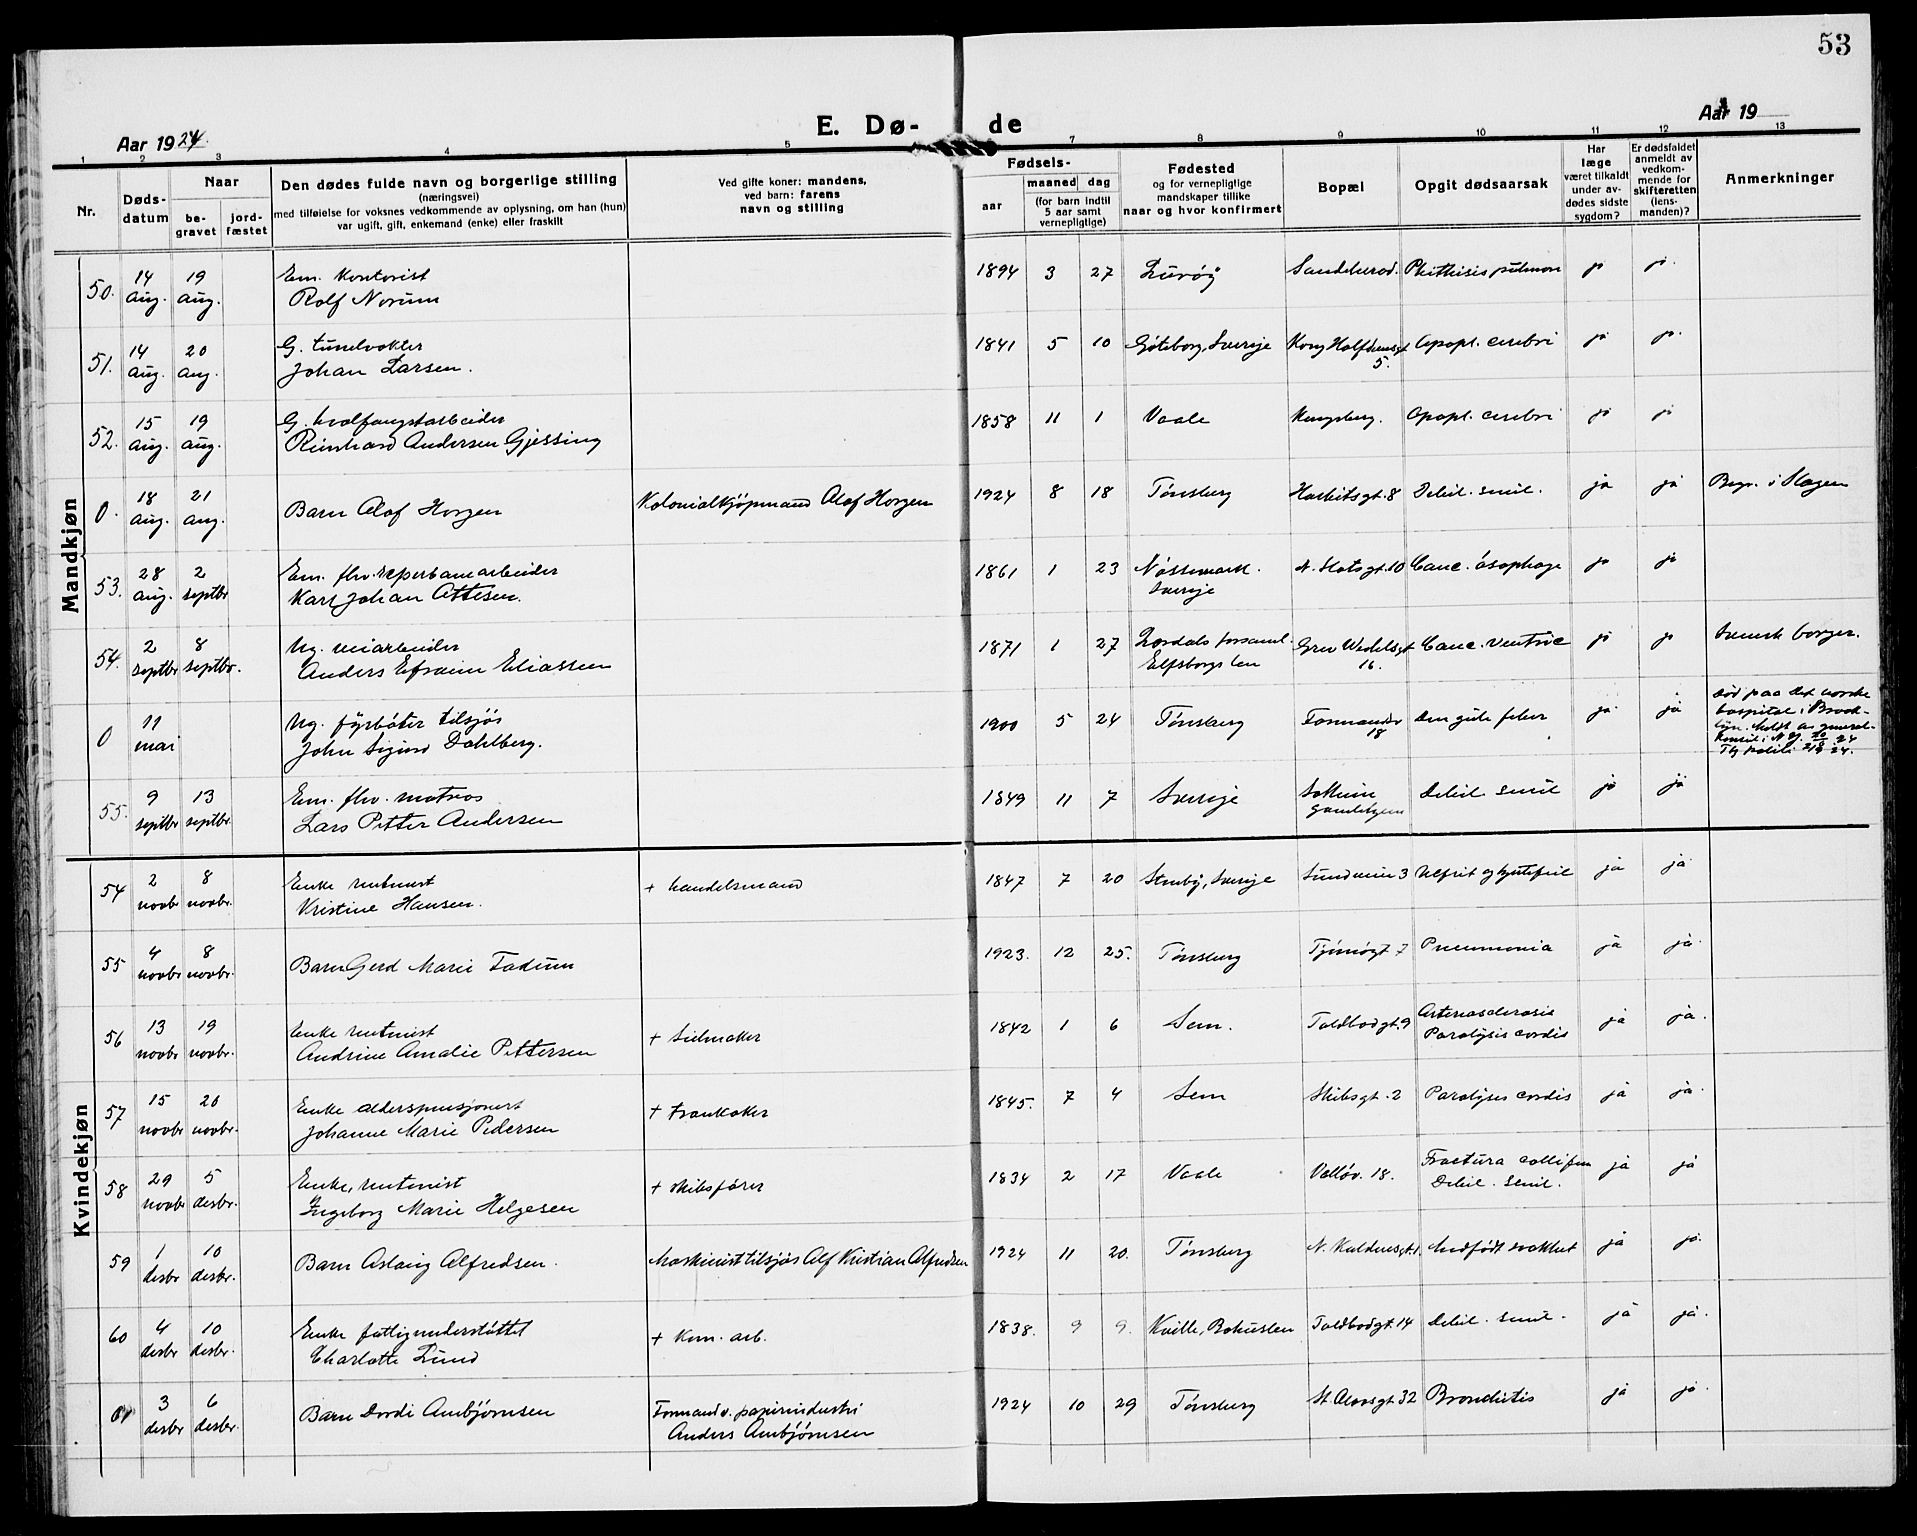 53
Aar 1924.
E. Dø-
de
Aar 19
1 2 3 4 5 7 8 9 10 11 12 13
Nr.
Døds-
datum
Naar
be-
gravet
jord-
fæstet
Den dødes fulde navn og borgerlige stilling
(næringsvei)
med tilføielse for voksnes vedkommende av oplysning, om han (hun)
var ugift, gift, enkemand (enke) eller fraskilt
Ved gifte koner: mandens,
ved barn: farens
navn og stilling
Fødsels-
aar
maaned dag
(for barn indtil
5 aar samt
vernepligtige)
Fødested
og for vernepligtige
mandskaper tillike
naar og hvor konfirmert
Bopæl
Opgit dødsaarsak
Har
læge
været tilkaldt
under av-
dødes sidste
sygdom?
Er dødsfaldet
anmeldt av
vedkom-
mende for
skifteretten
(lens-
manden)?
Anmerkninger
Mandkjøn
50. 14 aug. 19 aug. Em. kontorist
Rolf Norum
1894 3 27 Lurøy Sandeherad. Phithisis pulmon ja ja.
51. 14 aug. 20 aug. G. tunelvokter
Johan Larsen.
1841 5 10 Gøteborg, Sverije Kong Halfdansgt 5. Apopl. cerebri ja ja.
52. 15 aug. 19 aug. G. hvalfangstarbeider
Reinhard Andersen Gjessing
1858 11 1 Vaale Kongsberg. Apopl. cerebri ja ja
0. 18 aug. 21 aug. Barn Olaf Horgen
Kolonialkjøpmand Olaf Horgen
1924 8 18 Tønsberg gt. 8 Debil. senil. ja ja Begr. i Slagen
53. 28 aug. 2 septbr Em. fhv. reperbanearbeider
Karl Johan Ottesen.
1861 1 23 Nøssemark. Sverije N. Slotsgt. 10 Canc. øsophage ja ja
54. 2 septbr 8 septbr. Ug. veiarbeider
Anders Efraim Eliassen
1871 1 27 forsaml. Elfsborgs len Grev Wedelsgt 16. Canc. ventric ja ja Svensk borger.
0 11 mai Ug. fyrbøter tilsjøs
John Sigurd Dahlberg.
1900 5 24 Tønsberg 18 Den gule feber ja. ja Død paa det norske
hospital i Brook-
lyn. Meldt av general-
konsul i N.Y.
55. 9 septbr 13 septbr. Em. fhv. matros
Lars Petter Andersen
1849 11 7 Sverije Solheim Gamlehjem Debil senil ja ja
Kvindekjøn
54 2 novbr 8 novbr. Enke rentenist
Kristine Hansen.
+ handelsmand
1847 7 20 Sverige 3 Nefrit og ja ja
55 4 novbr 8 novbr. Barn Gerd Marie Fadum
1923. 12 25. Tønsberg Tjømøgt 7 Pneumonia ja ja.
56 13 novbr 19 novbr. Enke rentenist
Andrine Amalie Pettersen
+ Seilmaker
1842 1 6 Sem. Toldbodgt. 9 Arteriosclerosis
Paralysis cordis ja ja.
57 15 novbr 20 novbr. Enke alderspensjonert
Johanne Marie Pedersen
+ trankoker
1845. 7 4 Sem Skibsgt. 2 Paralysis cordis ja ja.
58 29 novbr 5 desbr. Enke, rentenist
Ingeborg Marie Helgesen
+ skibsfører
1834 2 17 Vaale Valløv. 18. Fractura colli fem
Debil. senil. ja ja
59 1 desbr 10 desbr. Barn Aslaug Alfredsen.
Maskinist tilsjøs Alf Kristian Alfredsen
1924 11 20. Tønsberg N. 1. Medfødt svakhet ja ja.
60 4 desbr 10 desbr. Enke fattigunderstøttet
Charlotte Lund
+ Kom. arb.
1838. 9 9. Kville, Bohuslen Toldbodgt. 14 Debil. senil. ja ja.
61 3 desbr 6 desbr. Barn Dordi Ambjørnsen
Formand v. papirindustri
Anders Ambjørnsen
1924 10 29 Tønsberg St. Olavsgt 32 Bronchitis ja ja.